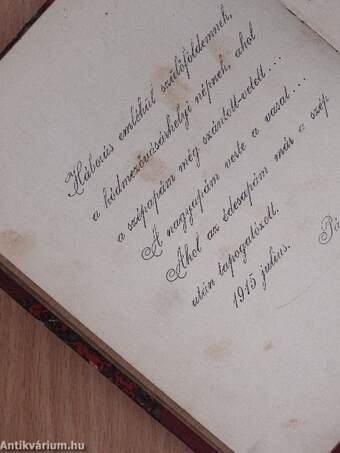 Háborús emlékül szülőföldemnek,
a hódmezővásárhelyi népnek, ahol
a szépapám még szántott-vetett....
A nagyapám verte a vasat....
Ahol az édesapám már a szép
után tapogatózott.
1915 julius.
Pá
Antikvárium.hu